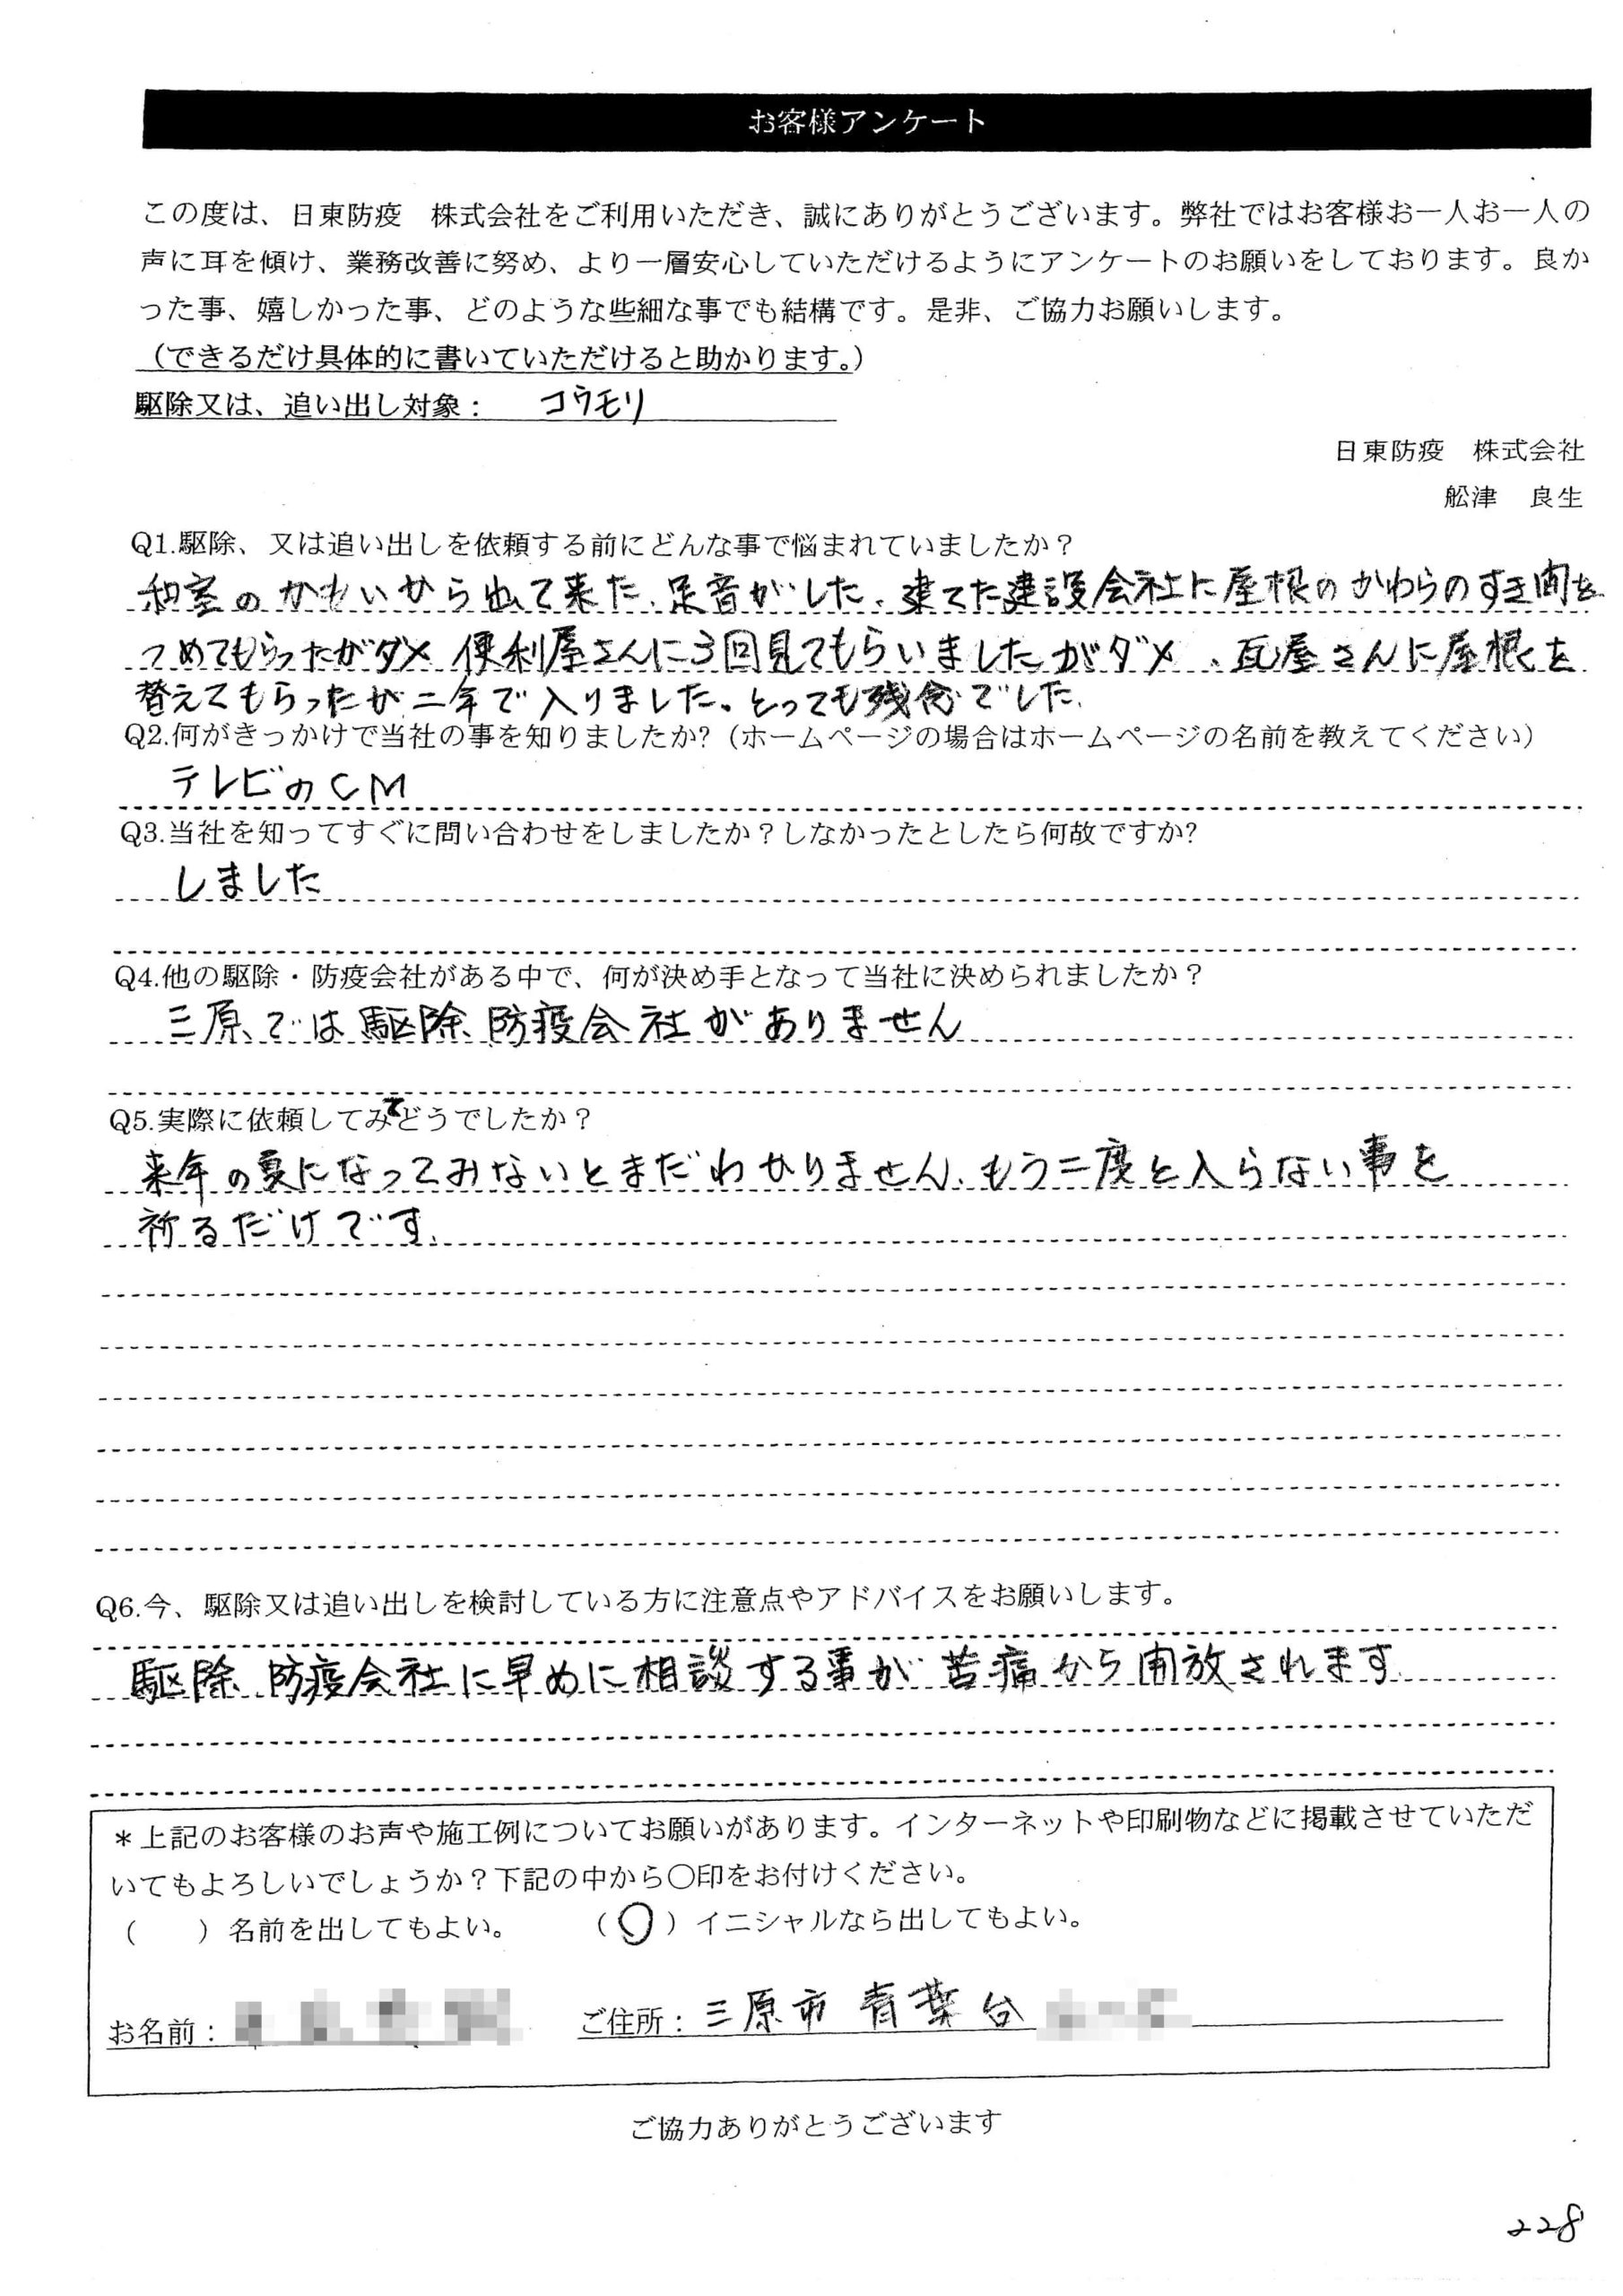 お客様アンケート
この度は、日東防疫　株式会社をご利用いただき、誠にありがとうございます。弊社ではお客様お一人お一人の
声に耳を傾け、業務改善に努め、より一層安心していただけるようにアンケートのお願いをしております。良か
った事、嬉しかった事、どのような些細な事でも結構です。是非、ご協力お願いします。
（できるだけ具体的に書いていただけると助かります。）
駆除又は、追い出し対象：　コウモリ
日東防疫　株式会社
舩津　良生
Q1.駆除、又は追い出しを依頼する前にどんな事で悩まれていましたか？
和室のかもいから出て来た、足音がした、建てた建設会社に屋根のかわらのすき間を
つめてもらったがダメ 便利屋さんに3回見てもらいましたがダメ、瓦屋さんに屋根を
替えてもらったが二年で入りました。とっても残念でした、
Q2.何がきっかけで当社の事を知りましたか?（ホームページの場合はホームページの名前を教えてください）
テレビのCM
Q3.当社を知ってすぐに問い合わせをしましたか？しなかったとしたら何故ですか?
しました
Q4.他の駆除・防疫会社がある中で、何が決め手となって当社に決められましたか？
三原では駆除、防疫会社がありません
Q5.実際に依頼してみてどうでしたか？
来年の夏になってみないとまだわかりません、もう二度と入らない事を
祈るだけです、
Q6.今、駆除又は追い出しを検討している方に注意点やアドバイスをお願いします。
駆除、防疫会社に早めに相談する事が苦痛から開放されます
＊上記のお客様のお声や施工例についてお願いがあります。インターネットや印刷物などに掲載させていただ
いてもよろしいでしょうか？下記の中から○印をお付けください。
（　　）名前を出してもよい。　　（○）イニシャルなら出してもよい。
お名前：　　ご住所：三原市 青葉台
ご協力ありがとうございます
228